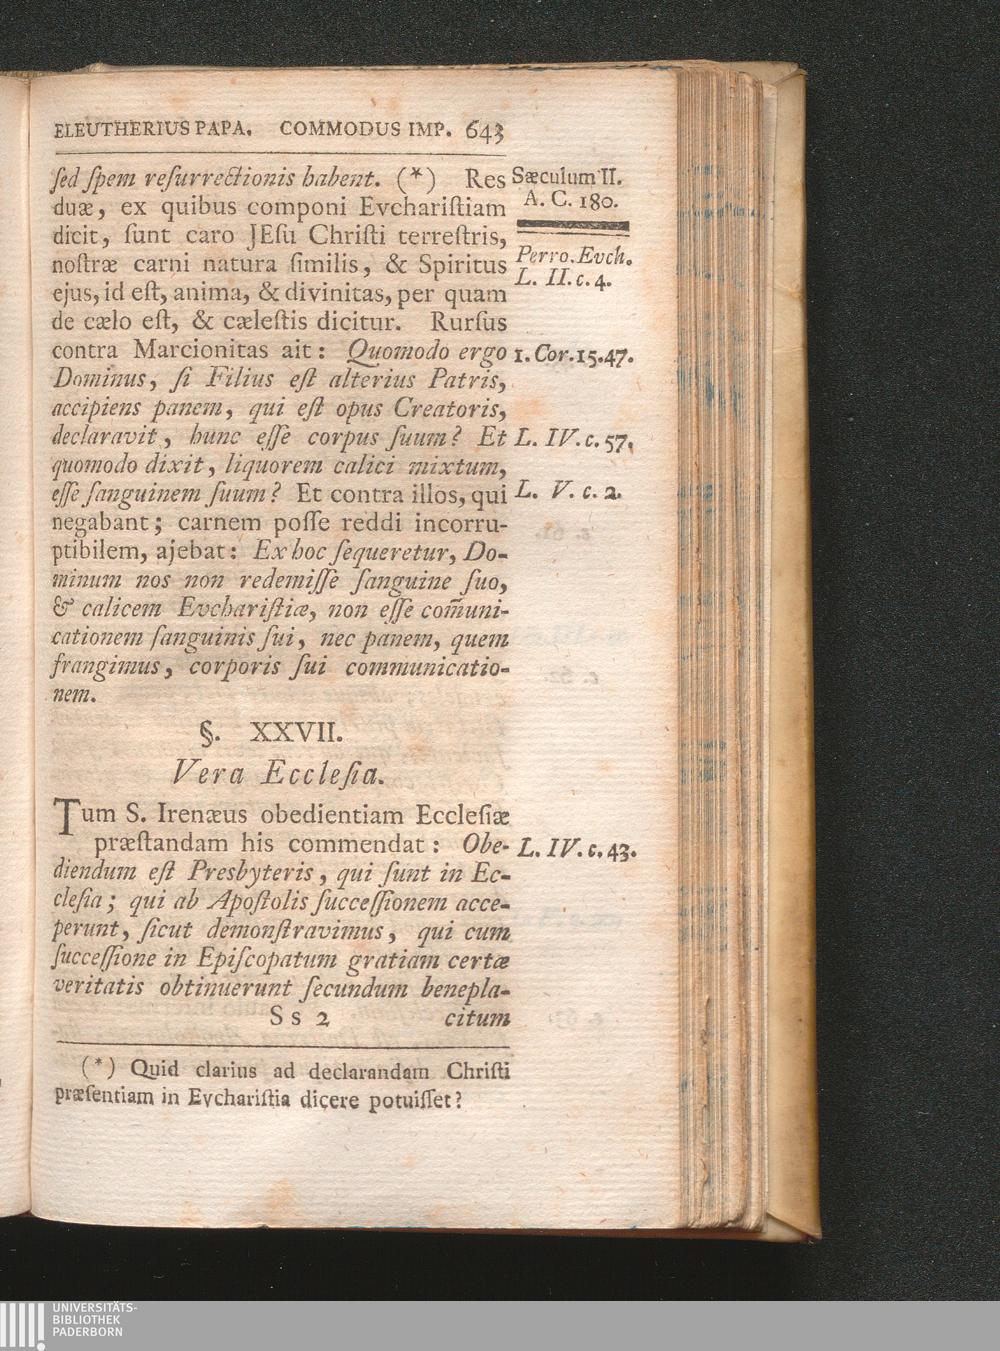 ELEUTHERIUS PAPA. COMMODUS IMP. 643
ſed ſpem reſurrectionis habent. (*) Res
duæ, ex quibus componi Evchariſtiam
dicit, ſunt caro JEſu Chriſti terreſtris,
noſtræ carni natura ſimilis, & Spiritus
ejus, id eſt, anima, & divinitas, per quam
de cælo eſt, & cæleſtis dicitur. Rurſus
contra Marcionitas ait: Quomodo ergo
Dominus, ſi Filius eſt alterius Patris,
accipiens panem, qui eſt opus Creatoris,
declaravit, hunc eſſe corpus ſuum? Et
quomodo dixit, liquorem calici mixtum,
eſſe ſanguinem ſuum? Et contra illos, qui
negabant; carnem poſſe reddi incorru-
ptibilem, ajebat: Ex hoc ſequeretur, Do-
minum nos non redemiſſe ſanguine ſuo,
& calicem Evchariſtiæ, non eſſe com̃uni-
cationem ſanguinis ſui, nec panem, quem
frangimus, corporis ſui communicatio-
nem.
Sæculum II.
A. C. 180.
Perro. Evch.
L. II. c. 4.
1. Cor. 15. 47.
L. IV. c. 57.
L. V. c. 2.
§. XXVII.
Vera Eccleſia.
Tum S. Irenæus obedientiam Eccleſiæ
præſtandam his commendat: Obe-
diendum eſt Presbyteris, qui ſunt in Ec-
cleſia; qui ab Apoſtolis ſucceſſionem acce-
perunt, ſicut demonſtravimus, qui cum
ſucceſſione in Epiſcopatum gratiam certæ
veritatis obtinuerunt ſecundum benepla-
L. IV. c. 43.
S s 2 citum
(*) Quid clarius ad declarandam Chriſti
præſentiam in Evchariſtia dicere potuiſſet?
UNIVERSITÄTS-
BIBLIOTHEK
PADERBORN